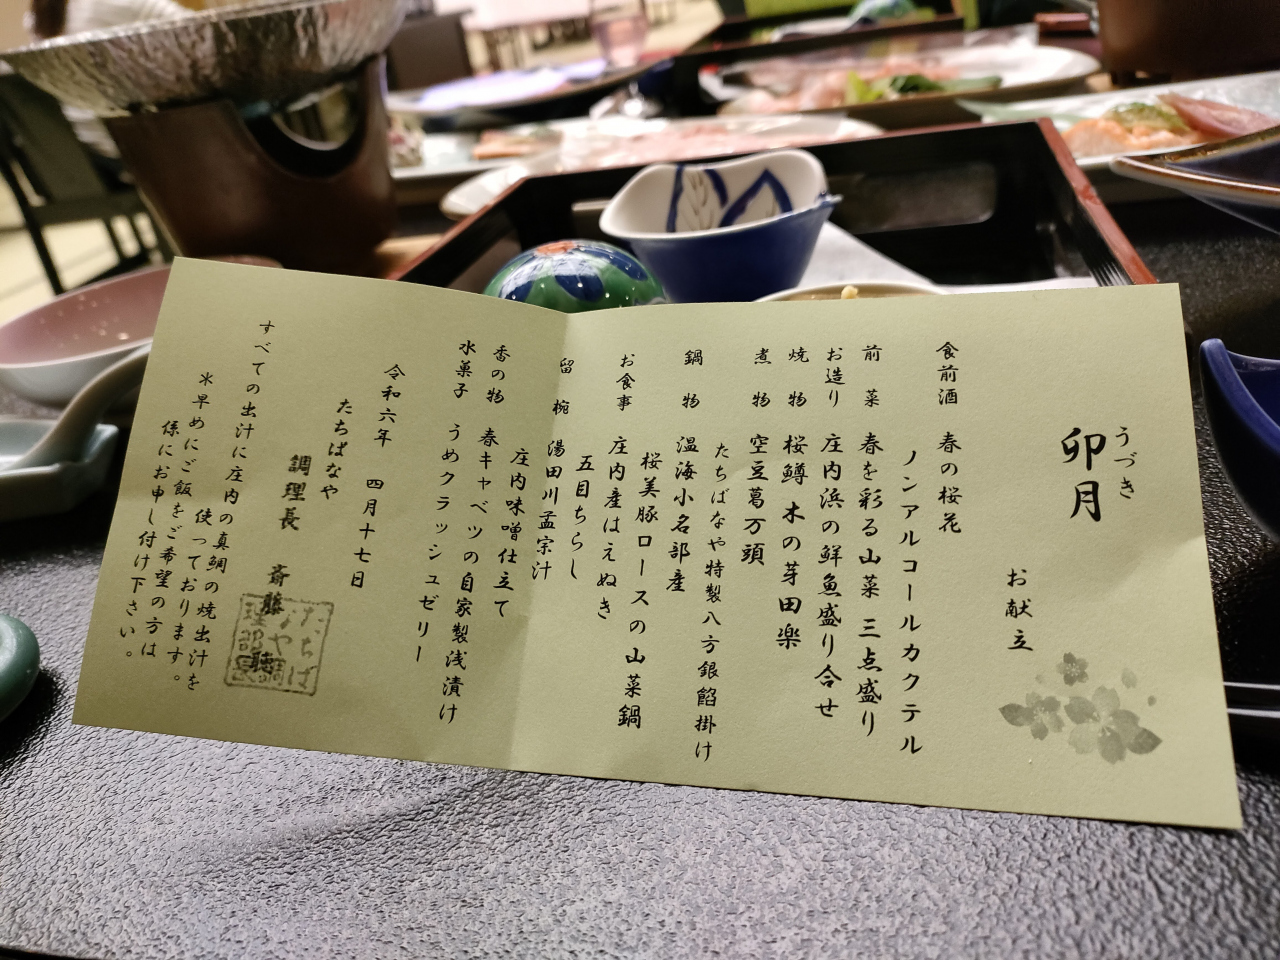 うづき
卯月
お献立
食前酒 春の桜花
ノンアルコールカクテル
前菜 春を彩る山菜 三点盛り
お造り 庄内浜の鮮魚盛り合せ
焼物 桜鱒 木の芽田楽
煮物 空豆葛万頭
たちばなや特製八方銀餡掛け
鍋物 温海小名部産
桜美豚ロースの山菜鍋
お食事 庄内産はえぬき
五目ちらし
留椀 湯田川孟宗汁
庄内味噌仕立て
香の物 春キャベツの自家製浅漬け
水菓子 うめクラッシュゼリー
令和六年 四月十七日
たちばなや
調理長 斎藤
たちば
なや調
理部
すべての出汁に庄内の真鯛の焼出汁を
使っております。
※早めにご飯をご希望の方は
係にお申し付け下さい。